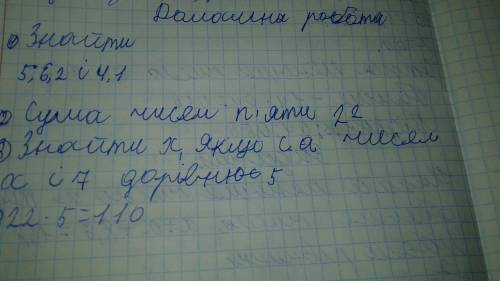 Домашна робота
1) Знайти
5,6,2 і 4,1
2) Сума чисел п'яти 22
3) Знайти x, якщо с.а чисел
x і 7 дорівнює 5
22 · 5 = 110